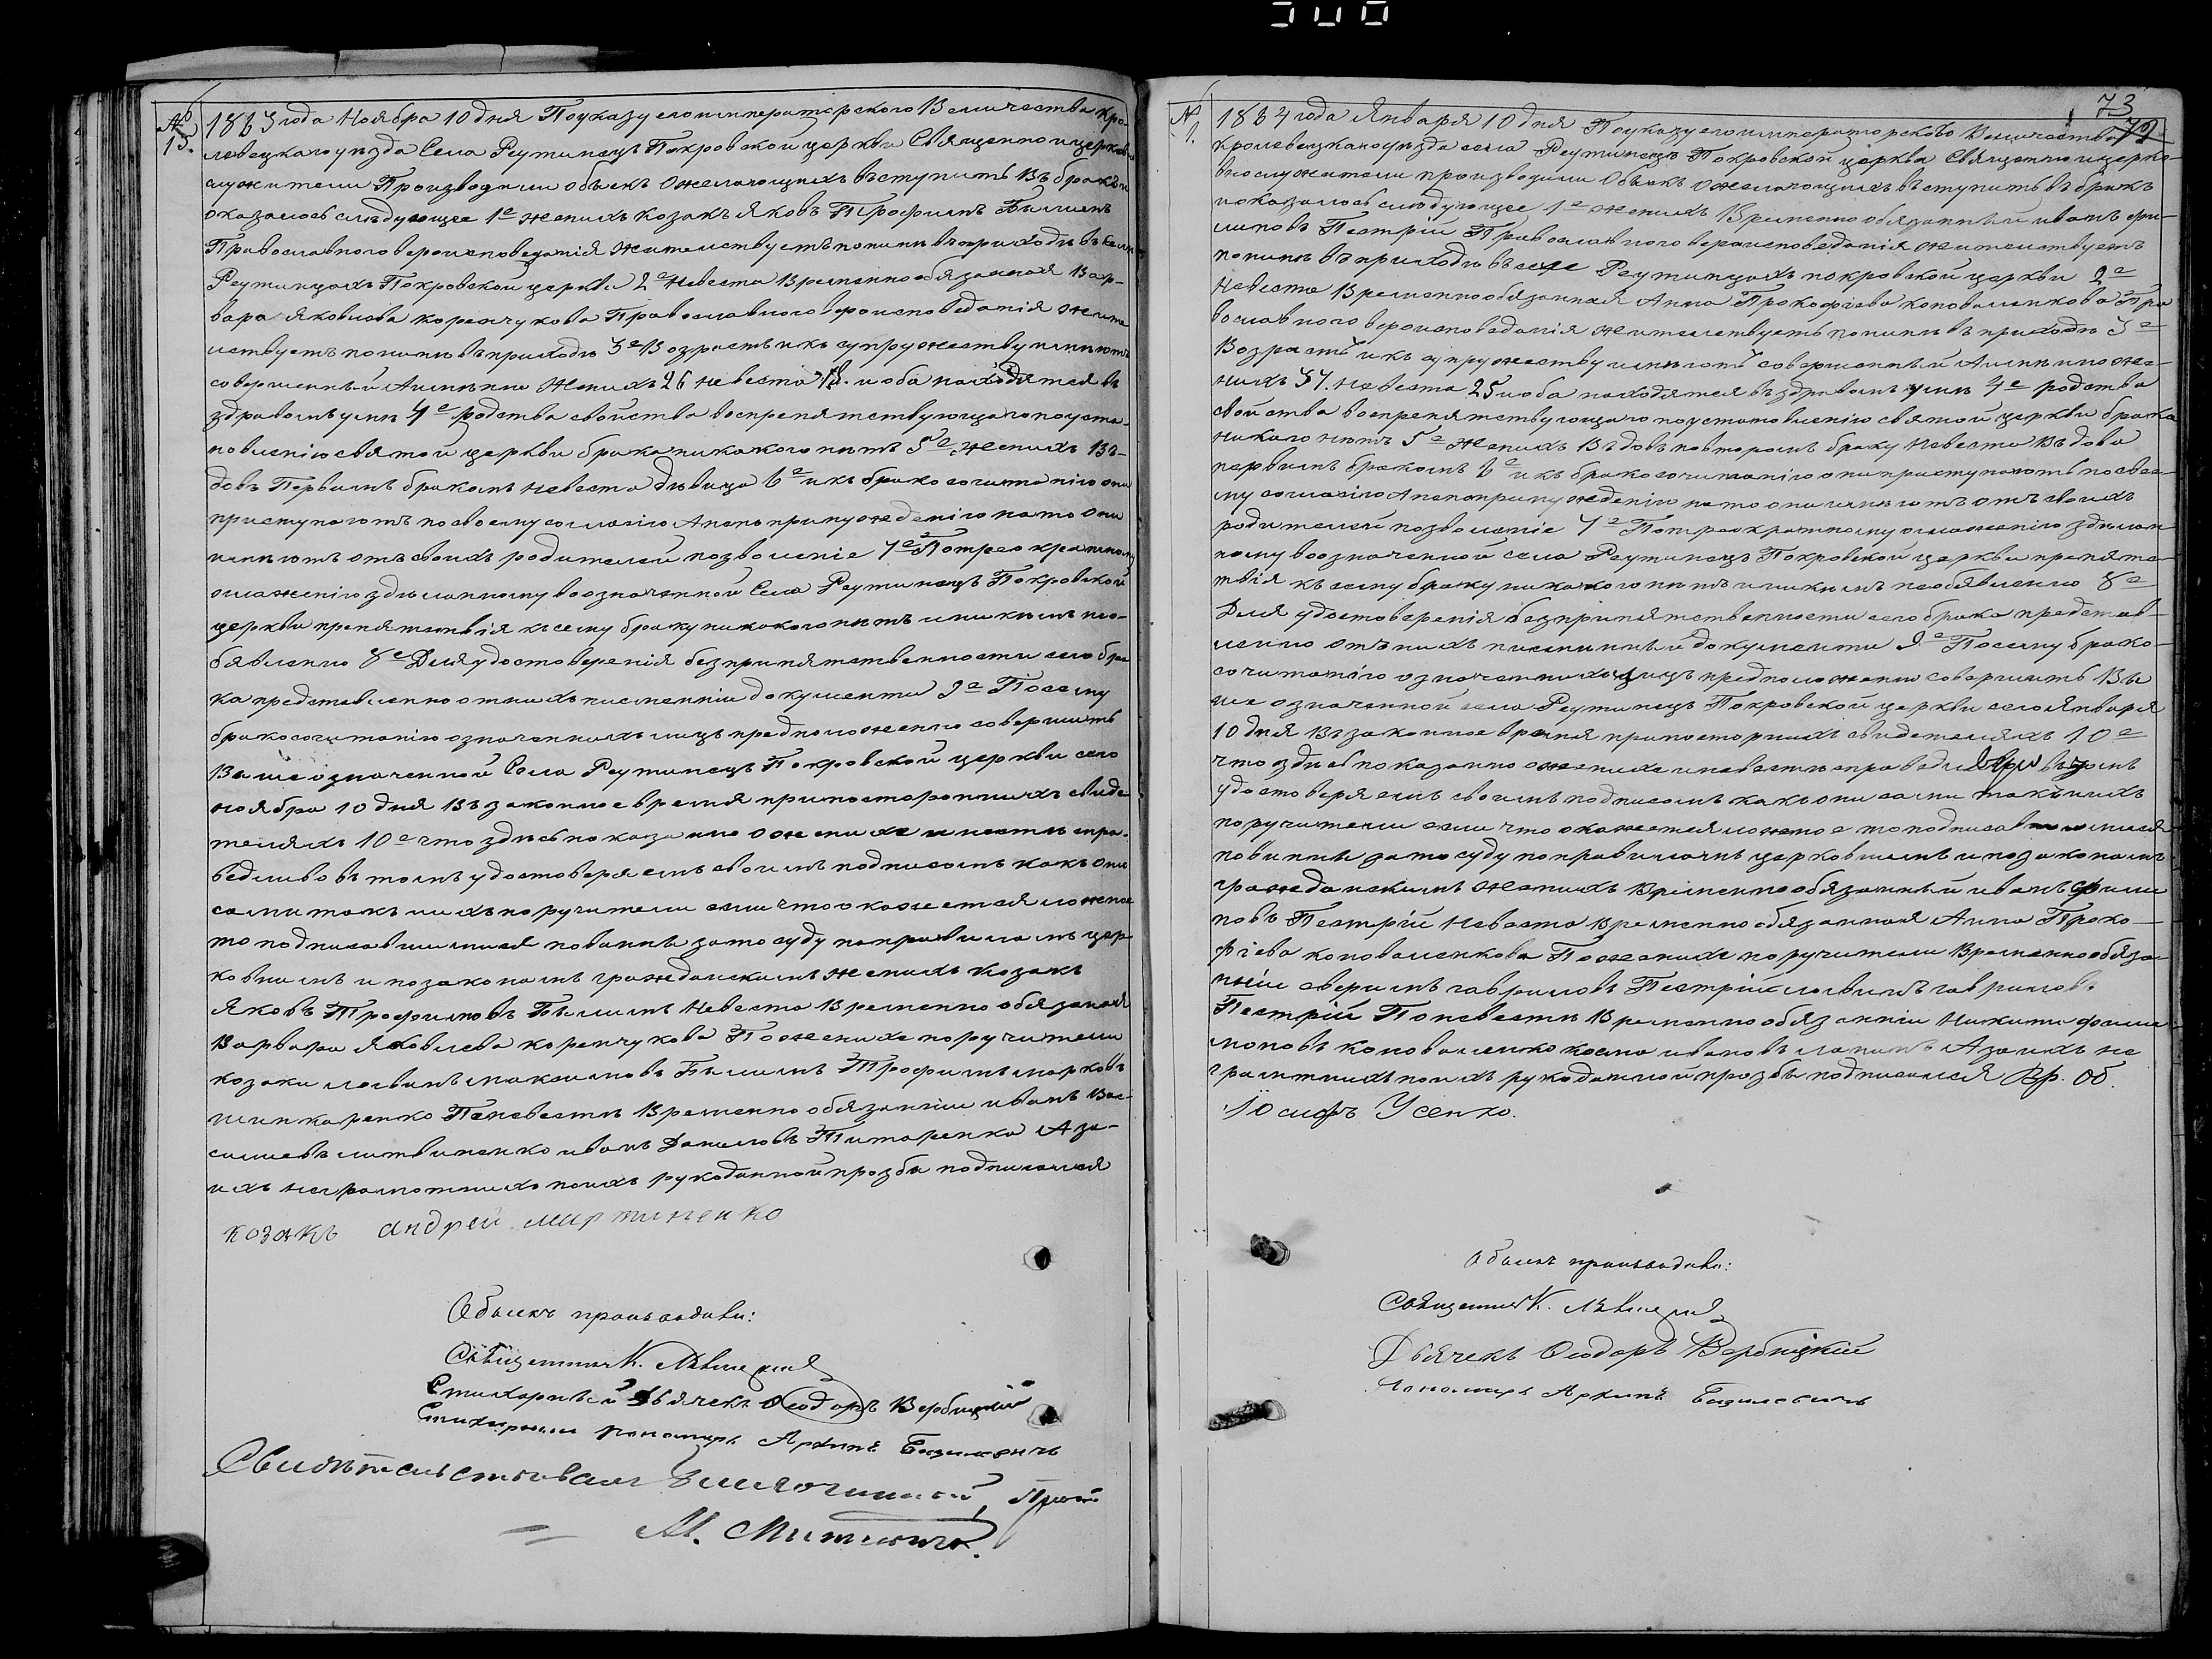 № 15.
1863 года Ноября 10 дня По указу его императорского Величества Кро-
левецкаго уезда Села Реутинецъ Покровской церкви Священно и церковно
служители Производили обыскъ о желающихъ вступить въ бракъ и
оказалось следующее 1е женихъ Козакъ Яковъ Трофимъ Былимъ
Православного вероисповедания жительствуетъ поныне въ приходе въ селе
Реутинцахъ Покровской церкви 2е Невеста Временно обязанная Вар-
вара Яковлева Коренчукова Православного вероисповедания жите
льствуетъ поныне въ приходе 3е Возрастъ къ супружеству имеютъ
совершенный а именно Женихъ 26 невеста 18. и оба находятся въ
здравомъ уме 4е родства свойства воспрепятствующаго по уста-
новлению святой церкви брака никакого нетъ 5е Женихъ въ-
довъ Первымъ бракомъ невеста девица 6е къ бракосочетанию они
приступаютъ по своему согласию а не по принуждению на то они
имеютъ отъ своихъ родителей позволение 7е По трео кратному
оглажению зделанному во означенной Села Реутинецъ Покровской
церкви препятствия къ сему браку никакого нетъ и никемъ нео-
бявленно 8е Для удостоверения безприпятственности сего бра
ка представленно отних писменнии документи 9е По сему
бракосочетанию означенныхъ лицъ предположенно совершить
Ваше означенной Села Реутинецъ Покровской церкви сего
ноября 10 дня въ законное время при посторонныхъ свиде
теляхъ 10е что здесь показанно о женихе и невесте спра-
ведливо въ томъ удостоверяемъ своимъ подписомъ какъ они
сами такъ и ихъ поручители если что окажется ложное
то подписавшиеся повинны за то суду по правиламъ цер
ковнымъ и по законамъ гражданскимъ Женихъ Козакъ
Яковъ Трофимовъ Былимъ Невеста Временно обязаная
Варвара Яковлева Коренчукова По женихе поручители
козаки максимовъ Былимъ Трофимъ марковъ
шинкаренко По невесте Временно обязаннии иванъ Вас-
силиевъ литвиненко иванъ Даниловъ Титаренко А за-
ихъ неграмотнихъ по ихъ рукоданной прозбе подписался
козакъ андрей мартиненко
Обыскъ производили:
Священникъ К.
Стихарный дьячекъ Феодоръ Вербицкий
Стихарный пономарь Архипъ Базилевичъ
Свидетельствовалъ Благочинный,
М.
73
№ 1.
1864 года Января 10 дня По указу его императорского Величества
Кролевецкаго уезда села Реутинецъ Покровской церкви Священно и церко-
вно служители производили Обыскъ о желающихъ вступить въ бракъ
и оказалось следующее 1е женихъ Временно обязанный иванъ фи-
липовъ Пестрий Православного вероисповедания жительствуетъ
поныне въ приходе въ селе Реутинцахъ покровской церкви 2е
Невеста Временно обязанная Анна Прокофиева коноваленкова Пра
вославного вероисповедания жительствуетъ поныне въ приходе 3е
Возрастъ къ супружеству имеютъ совершенный А именно Же-
нихъ 34. Невеста 25 и оба находятся въ здравомъ уме 4е родства
свойства воспрепятствующаго по установлению святой церкви брака
никаго нетъ 5е Женихъ Въдовъ повторомъ браку Невеста Въдова
первымъ бракомъ 6е къ бракосочетанию они приступаютъ по свое-
му согласию А непопринуждению на то они имеютъ отъ своихъ
родителей позволение 7е По трео кратному оглажению зделан
ному во означенной села Реутинецъ Покровской церкви препятс-
твия къ сему браку никакого нетъ и никемъ необявленно 8е
Для удостоверения безприпятственности сего брака представ-
ленно отъ нихъ писменный документи 9е По сему брако-
сочетанию означеннихъ лицъ предположенно совершить Въ
ше означенной села Реутинецъ Покровской церкви сего Января
10 дня Въ законное время при посторнихъ свидетеляхъ 10е
что здесь показанно о женихе и невесте справедливо въ томъ
удостоверяемъ своимъ подписомъ какъ они сами такъ и ихъ
поручители если что окажется ложное то подписавшиеся
повинны за то суду по правиламъ церковнымъ и по законамъ
гражданскимъ Женихъ Временно обязанный иванъ фили
повъ Пестрий Невеста Временно обязанная Анна Проко
фиева коноваленкова По женихе поручители Временно обяза-
ннии аверимъ гавриловъ Пестрий гавриловъ
Пестрий По невесте Временно обязаннии Никита
коноваленко косма ивановъ А за ихъ не
грамтнихъ по ихъ рукоданной прозбе подписался Вр. Об.
Иосифъ Усенко.
Обыскъ производили:
Священникъ К.
Дьячекъ Феодоръ Вербицкий
Пономарь Архипъ Базилевичъ